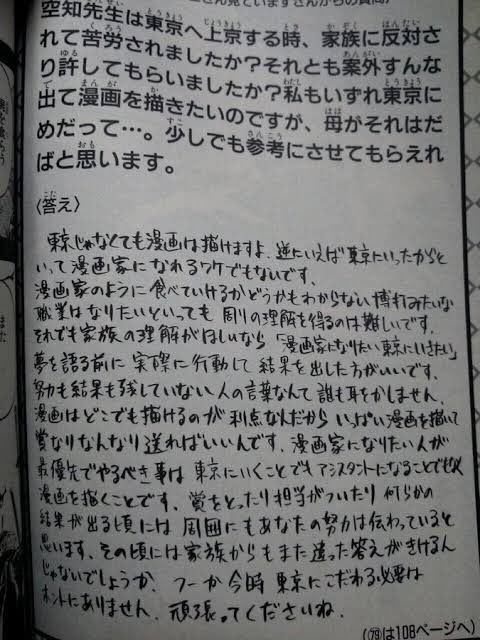 空知先生は東京へ上京する時、家族に反対さ
れて苦労されましたか?それとも案外すんな
り許してもらいましたか?私もいずれ東京に
出て漫画を描きたいのですが、母がそれはだ
めだって…。少しでも参考にさせてもらえれ
ばと思います。
〈答え〉
東京じゃなくても漫画は描けますよ。逆にいえば東京にいったからと
いって漫画家になれるワケでもないです。
漫画家のように食べていけるかどうかもわからない博打みたいな
職業になりたいといっても周りの理解を得るのは難しいです。
それでも家族の理解がほしいなら「漫画家になりたい東京にいきたい」
夢を語る前に実際に行動して結果を出した方がいいです。
努力も結果も残していない人の言葉なんて誰も耳をかしません。
漫画はどこでも描けるのが利点なんだからいっぱい漫画を描いて
賞なりなんなり送ればいいんです。漫画家になりたい人が
最優先でやるべき事は東京にいくことでもアシスタントになることでもなく
漫画を描くことです。賞をとったり担当がついたり何らかの
結果が出る頃には周囲にもあなたの努力は伝わっていると
思います。その頃には家族からもまた違った答えがきけるん
じゃないでしょうか。つーか今時東京にこだわる必要は
ホントにありません。頑張ってくださいね。
(79は108ページへ)